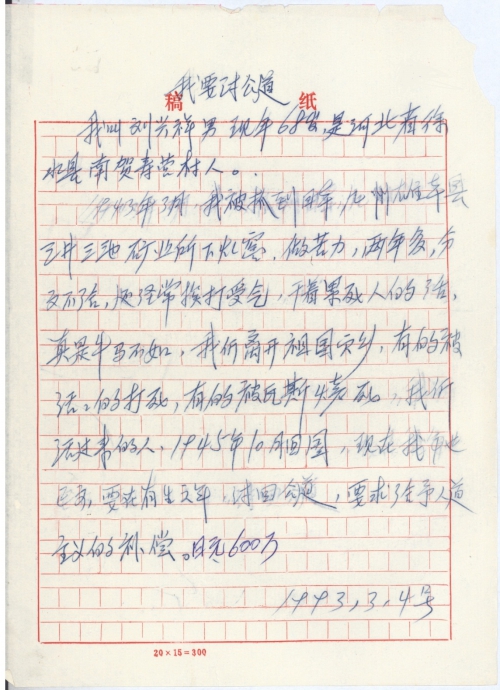 我要讨公道
稿 纸
我叫刘兴祥 男 现年68岁 是河北省徐
水县南贺寿营村人。
1943年3月,我被抓到日本,九州
三井三池矿业所下火窑,做苦力,两年多,分
文不给,还经常挨打受气,干着累死人的活,
真是牛马不如,我们离开祖国家乡,有的被
活活的打死,有的被瓦斯烧死,我们
活过来的人,1945年10月回国,现在我
要在有生之年,讨回公道,要求给予人道
主义的补偿。日元600万
1993.3.4号
20×15=300